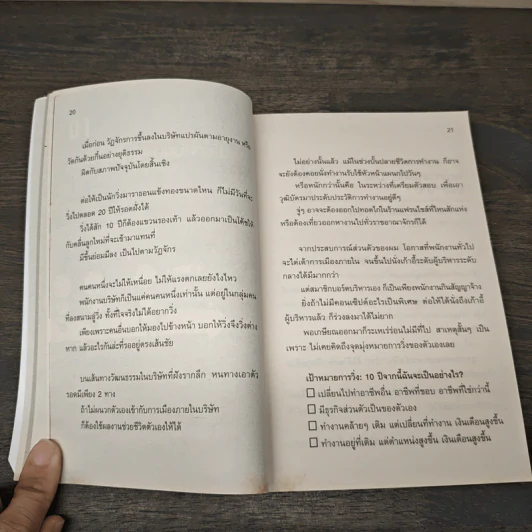 20
เมื่อก่อน วัฏจักรการขึ้นลงในบริษัทแปรผันตามอายุงาน หรือ
วัดกันด้วยกึ๋นอย่างยุติธรรม
ผิดกับสภาพปัจจุบันโดยสิ้นเชิง
ต่อให้เป็นนักวิ่งมาราธอนแข้งทองขนาดไหน ก็ไม่มีวันที่จะ
วิ่งไปตลอด 20 ปีให้รอดฝั่งได้
วิ่งได้สัก 10 ปีก็ต้องแขวนรองเท้า แล้วออกมาเป็นโค้ชให้
กับคลื่นลูกใหม่ที่จะเข้ามาแทนที่
มีขึ้นย่อมมีลง เป็นไปตามวัฏจักร
คนคนหนึ่งจะไม่ให้เหนื่อย ไม่ให้แรงตกเลยยังไงไหว
พนักงานบริษัทก็เป็นแค่คนคนหนึ่งเท่านั้น แต่อยู่ในกลุ่มคน
ที่ลงสนามสู่วิ่ง ทั้งที่ใจจริงไม่ได้อยากวิ่ง
เพียงเพราะคนอื่นบอกให้มองไปข้างหน้า บอกให้วิ่งจึงวิ่งต่าง
หาก แล้วอะไรกันล่ะที่รออยู่ตรงเส้นชัย
บนเส้นทางวัฒนธรรมในบริษัทที่ฝังรากลึก หนทางเอาตัว
รอดมีเพียง 2 ทาง
ถ้าไม่ผนวกตัวเองเข้ากับการเมืองภายในบริษัท
ก็ต้องใช้ผลงานช่วยชีวิตตัวเองให้ได้
21
ไม่อย่างนั้นแล้ว แม้ในช่วงบั้นปลายชีวิตการทำงาน ก็อาจ
จะยังต้องคอยนั่งทำงานรับใช้หัวหน้าแผนกไปวันๆ
หรือหนักกว่านั้นคือ ในระหว่างที่เตรียมตัวสอบ เพื่อเอา
วุฒิบัตรมาประดับประวัติการทำงานอยู่ดีๆ
จู่ๆ อาจจะต้องออกไปทอดไก่ในร้านแฟรนไชส์ที่ไหนสักแห่ง
หรือต้องเที่ยวออกหางานไปทั่วราชอาณาจักรก็ได้
จากประสบการณ์ส่วนตัวของผม โอกาสที่พนักงานทั่วไป
จะไต่เต้าการเมืองภายใน จนขึ้นไปนั่งเก้าอี้ระดับผู้บริหารระดับ
กลางได้มีมากกว่า
แต่สมาชิกบอร์ดบริหารเอง ก็เป็นเพียงพนักงานกินสัญญาจ้าง
ยิ่งถ้าไม่มีคอนเซ็ปต์อะไรเป็นพิเศษ ต่อให้ได้นั่งถึงเก้าอี้
ผู้บริหารแล้ว ก็ร่วงลงมาได้ไม่ยาก
พอเกษียณออกมาก็ระเหเร่ร่อนไม่มีที่ไป สาเหตุสั้นๆ เป็น
เพราะ ไม่เคยคิดถึงจุดมุ่งหมายการวิ่งของตัวเองเลย
เป้าหมายการวิ่ง: 10 ปีจากนี้ฉันจะเป็นอย่างไร?
☐ เปลี่ยนไปทำอาชีพอื่น อาชีพที่ชอบ อาชีพที่ใช่กว่านี้
☐ มีธุรกิจส่วนตัวเป็นของตัวเอง
☐ ทำงานคล้ายๆ เดิม แต่เปลี่ยนที่ทำงาน เงินเดือนสูงขึ้น
☐ ทำงานอยู่ที่เดิม แต่ตำแหน่งสูงขึ้น เงินเดือนสูงขึ้น